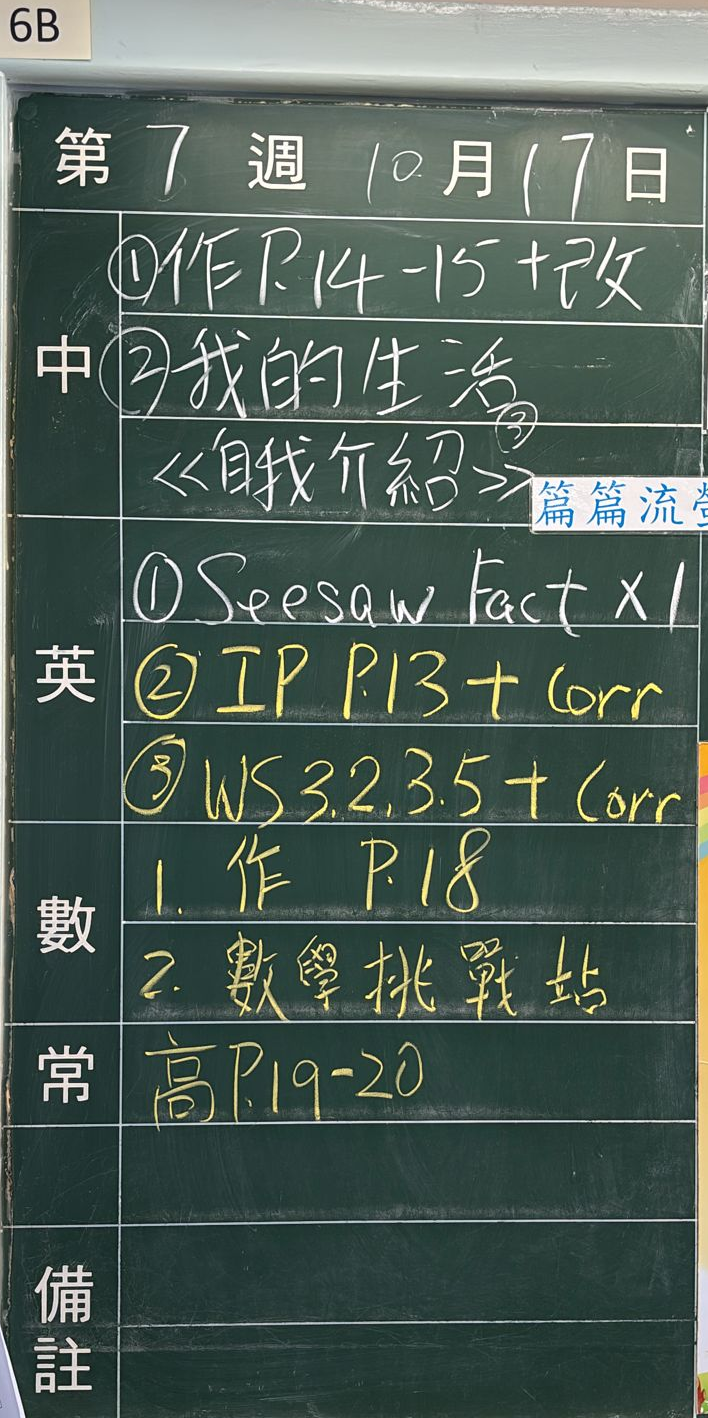 6B
第 7 週 10 月 17 日
中
①作 P.14-15 +改
②我的生活
③
<<自我介紹>>
篇篇流
英
①Seesaw Fact x1
②IP P.13 + Corr
③WS 3.2, 3.5 + Corr
數
1. 作 P.18
2. 數學挑戰站
常
高 P.19-20
備註